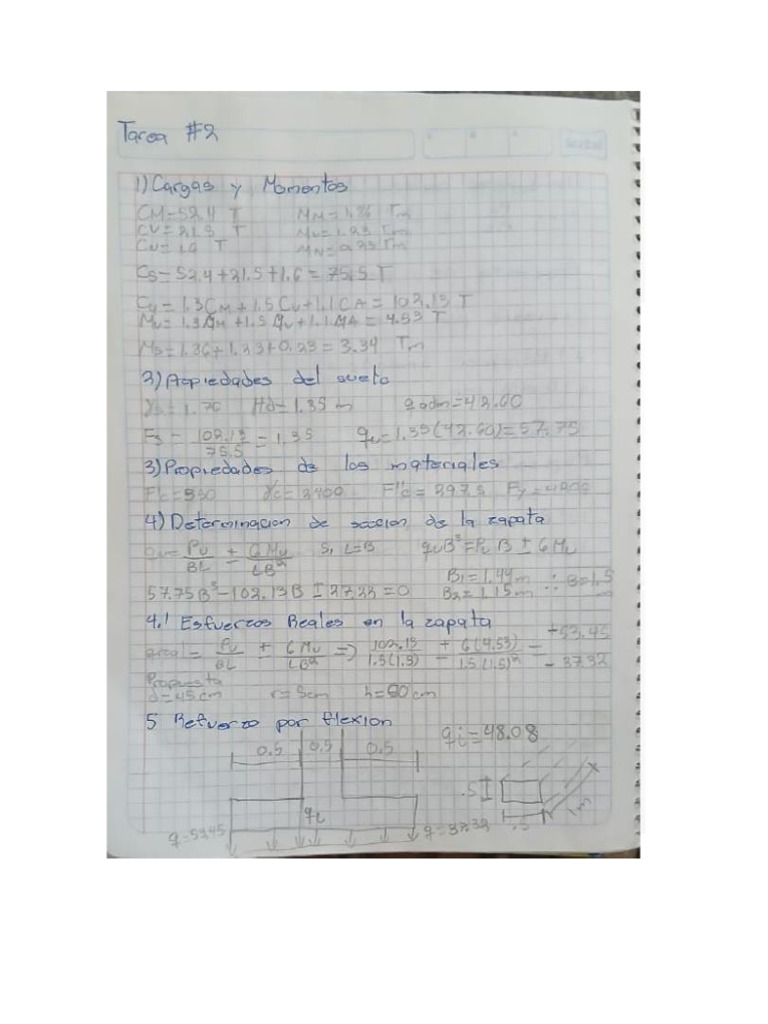 Tarea #2
1) Cargas y Momentos
CM=52.4 T    MM=1.86 Tm
CV=21.5 T    MV=1.23 Tm
T    0.23 Tm
CS=52.4+21.5+1.6=75.5 T
CU=1.3CM+1.5CV+1.1CA=102.13 T
MU=1.3 +1.5 +1.1 =4.53 T
+0.23=3.34 Tm
Propiedades del suelo
=1.70    Hd=1.35 m    qadm=42.60
Fs=102.13/75.5=1.35    qu=1.35(42.60)=57.75
3) Propiedades de los materiales
F'c=350    γc=2400    F''c=297.5    Fy=4200
4) Determinacion de seccion de la zapata
qu=PU/BL ± 6MU/LB²    Si L=B    quB³=PU B ± 6MU
57.75B³-102.13B±27.22=0    B1=1.44m    B2=1.15m    ∴ B=1.5 m
4.1 Esfuerzos Reales en la zapata
qreal=PU/BL ± 6MU/LB² => 102.13/1.5(1.5) ± 6(4.53)/1.5(1.5)² = +53.45 -37.32
Propuesta
d=45cm    r=5cm    h=50cm
5 Refuerzo por flexion    qi=48.08
0.5    0.5    0.5
.5
qi
.5    1m
q=53.45    q=37.32